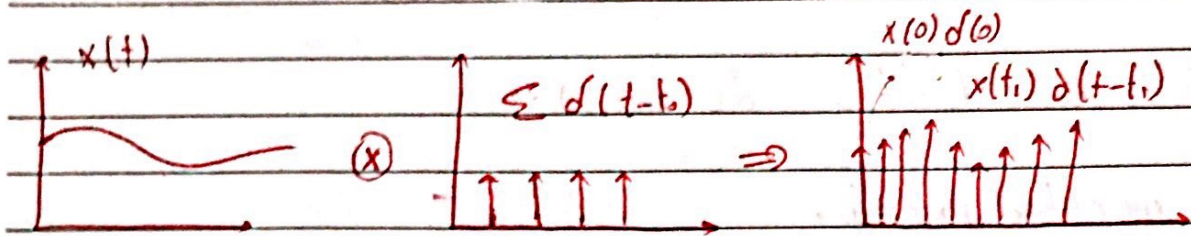 x(t)
Σ δ(t-t₀)
x(0) δ(0)
x(t₁) δ(t-t₁)
ⓧ
⇒